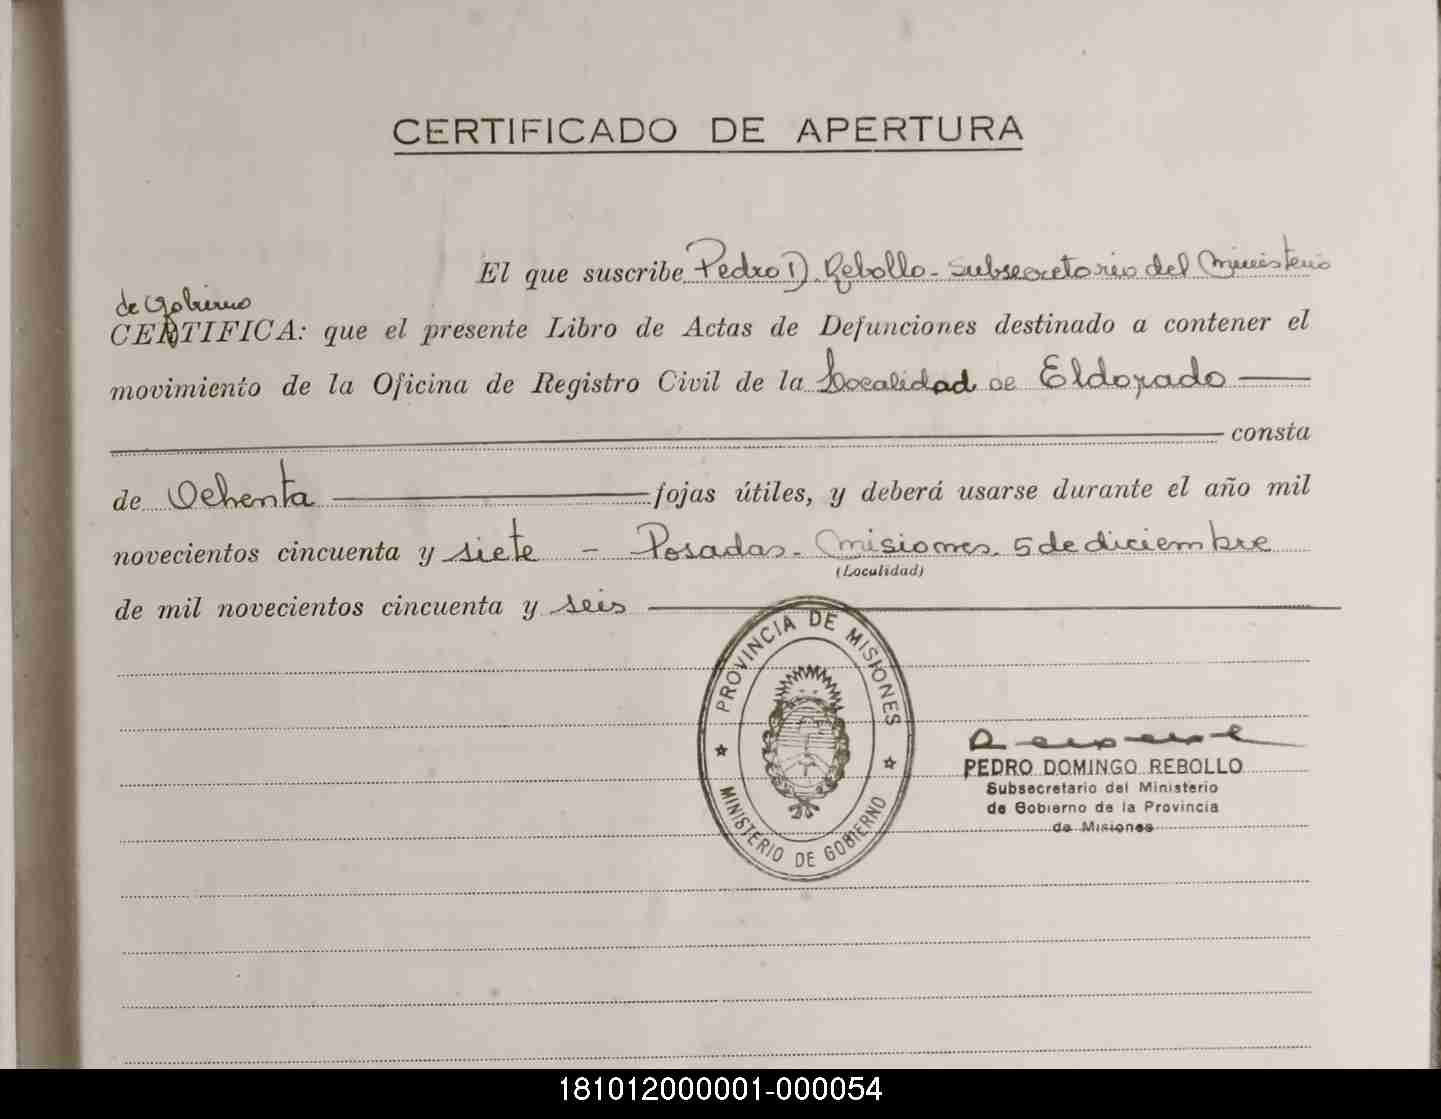 CERTIFICADO DE APERTURA
El que suscribe Pedro D. Rebollo - Subsecretario del Ministerio
de Gobierno
CERTIFICA: que el presente Libro de Actas de Defunciones destinado a contener el
movimiento de la Oficina de Registro Civil de la Localidad de Eldorado
consta
de Ochenta fojas útiles, y deberá usarse durante el año mil
novecientos cincuenta y siete - Posadas - Misiones 5 de diciembre
(Localidad)
de mil novecientos cincuenta y seis
PROVINCIA DE MISIONES
MINISTERIO DE GOBIERNO
PEDRO DOMINGO REBOLLO
Subsecretario del Ministerio
de Gobierno de la Provincia
de Misiones
181012000001-000054